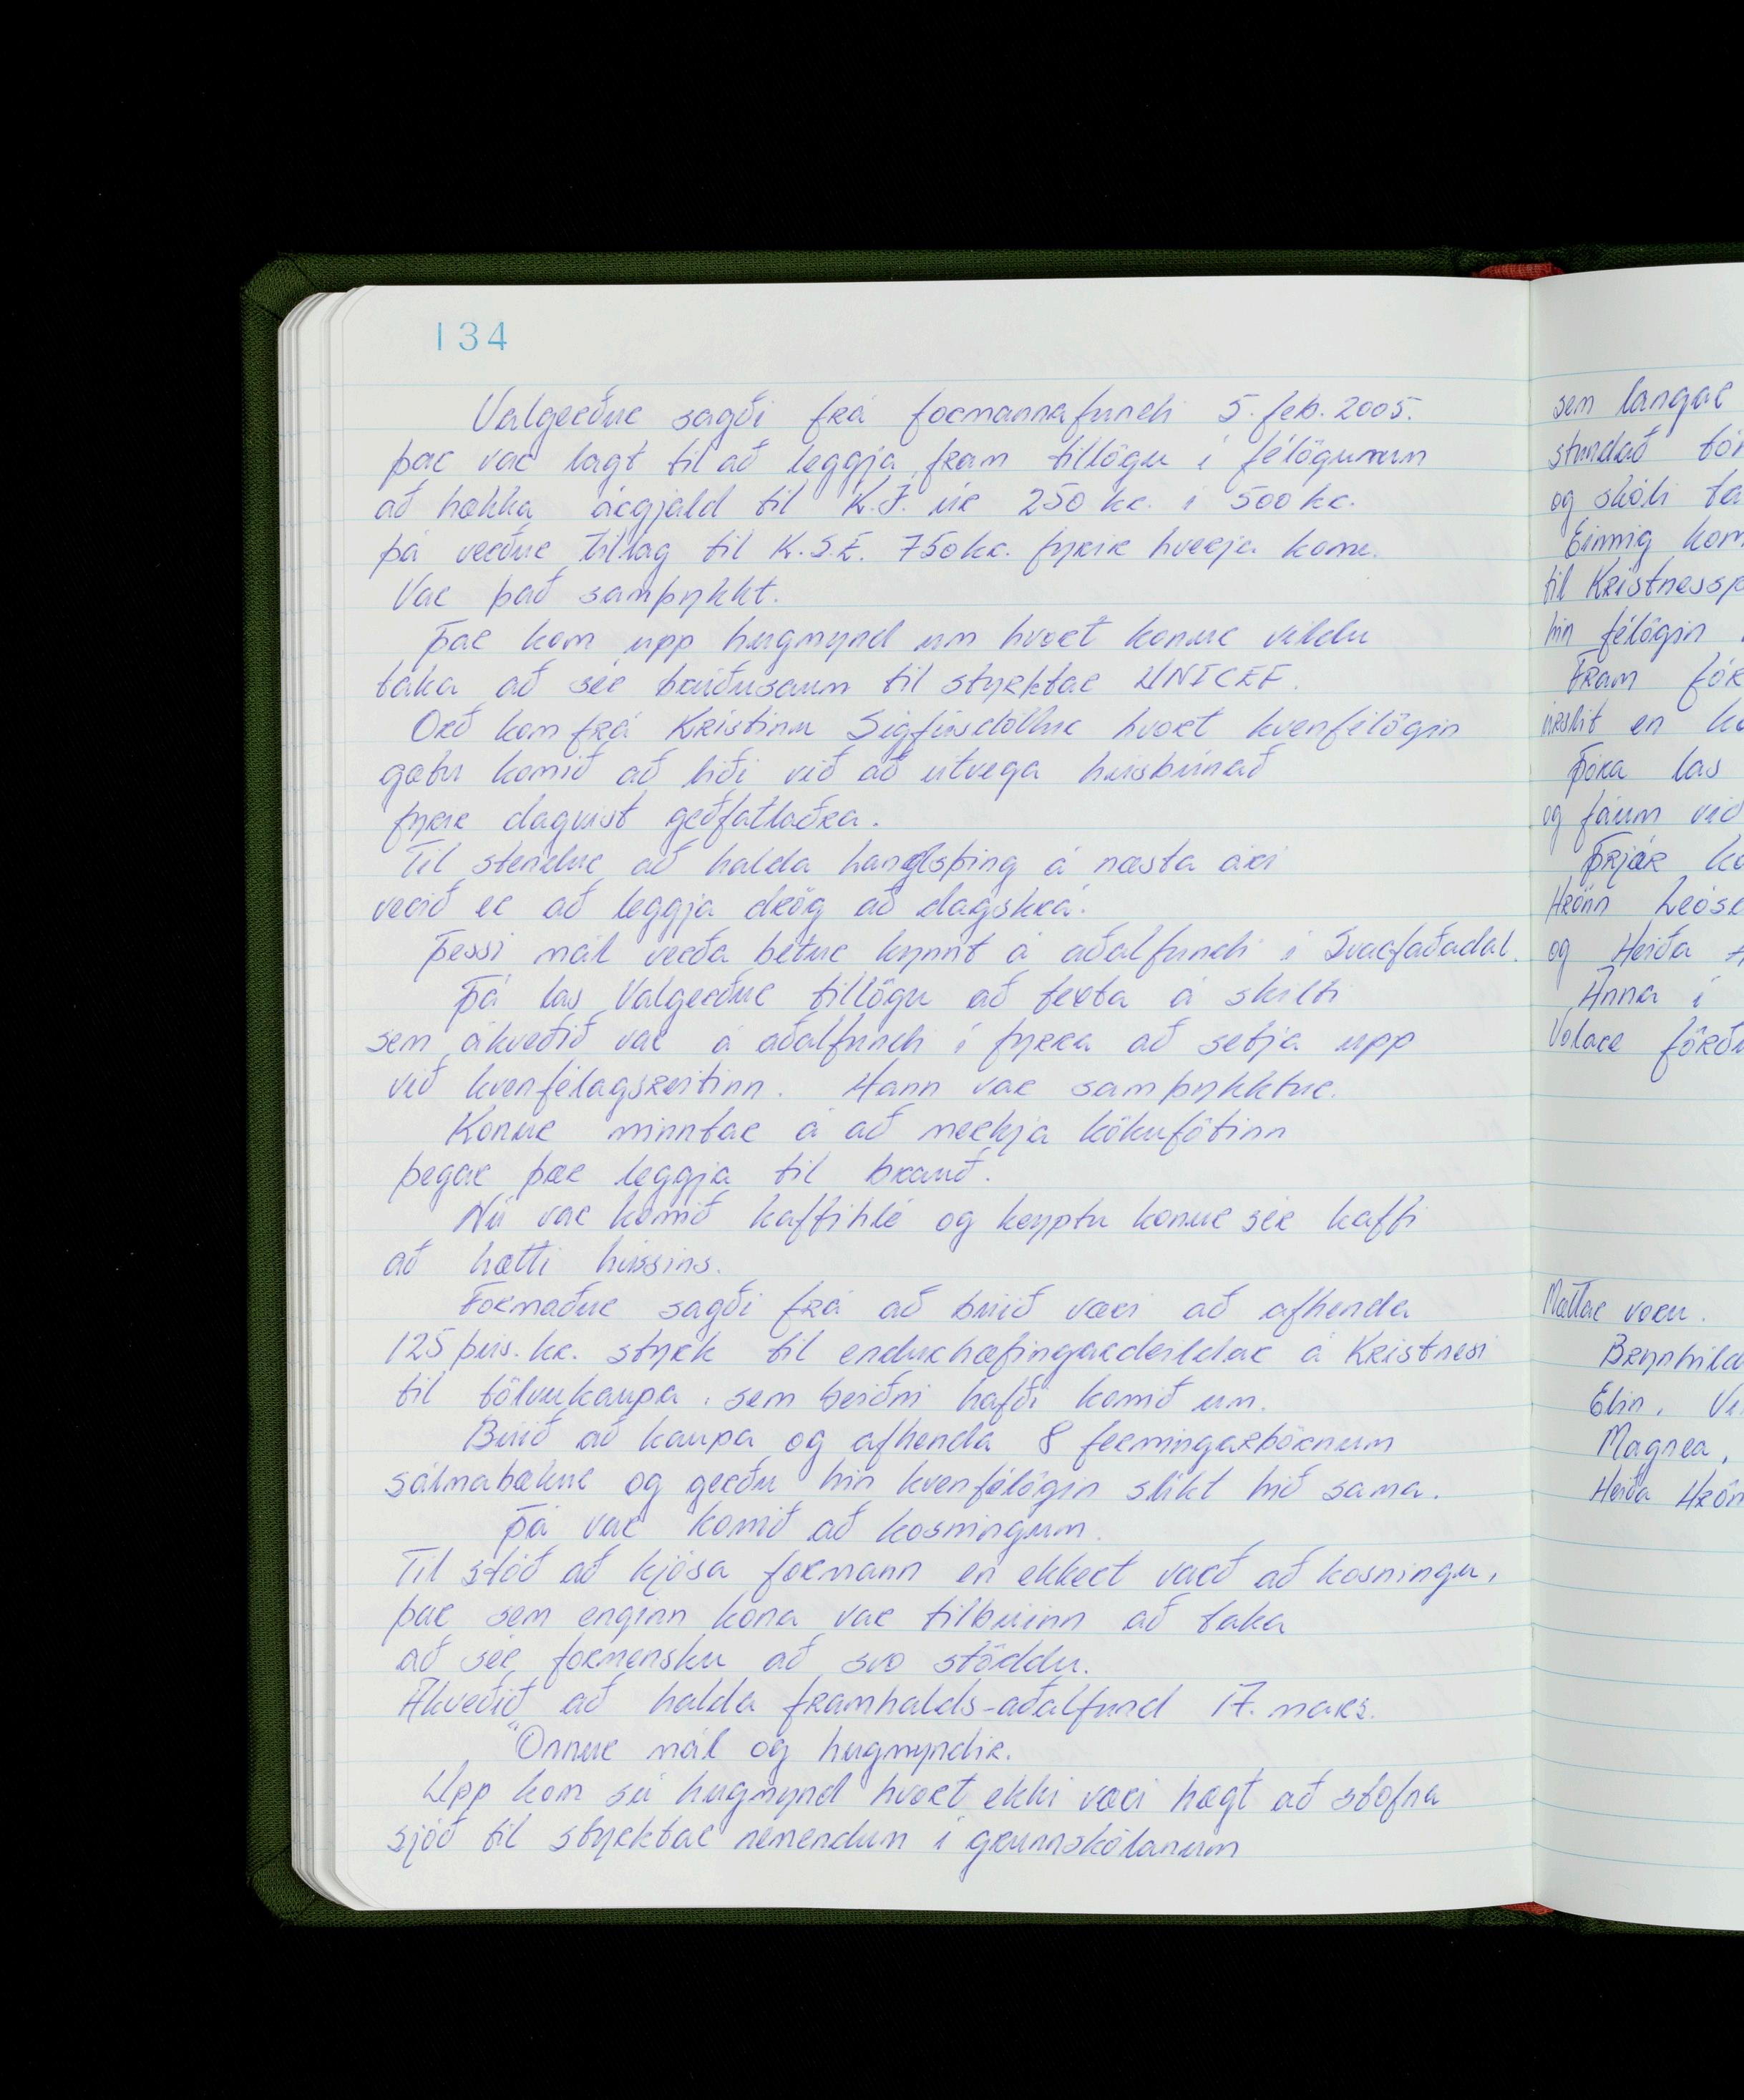 134
Valgerður sagði frá formannafundi 5. feb. 2005.
þar var lagt til að leggja fram tillögu í félögunum
að hækka árgjald til K.Í. úr 250 kr. í 500 kr.
þá verður tillag til K.S.E. 750 kr. fyrir hverja konu.
Var það samþykkt.
Þar kom upp hugmynd um hvort konur vildu
taka að sér brúðusaum til styrktar UNICEF.
Orð kom frá Kristínu Sigfúsdóttur hvort kvenfélögin
gætu komið að liði við að útvega húsbúnað
fyrir dagvist geðfatlaðra.
Til stendur að halda landsþing á næsta ári
verið er að leggja drög að dagskrá.
Þessi mál verða betur kynnt á aðalfundi í Svarfaðadal.
Þá las Valgerður tillögu að texta á skilti
sem ákveðið var á aðalfundi í fyrra að setja upp
við kvenfélagsreitinn. Hann var samþykktur.
Konur minntar á að merkja kökufötinn
þegar þær leggja til brauð.
Nú var komið kaffihlé og keyptu konur sér kaffi
að hætti hússins.
Formaður sagði frá að búið væri að afhenda
125 þús. kr. styrk til endurhæfingardeildar á Kristnesi
til tölvukaupa, sem beiðni hafði komið um.
Búið að kaupa og afhenda 8 fermingarbörnum
sálmabækur og gerðu hin kvenfélögin slíkt hið sama.
Þá var komið að kosningum.
Til stóð að kjósa formann en ekkert varð að kosningu,
þar sem enginn kona var tilbúinn að taka
að sér formensku að svo stöddu.
Ákveðið að halda framhalds-aðalfund 17. mars.
Önnur mál og hugmyndir.
Upp kom sú hugmynd hvort ekki væri hægt að stofna
sjóð til styrktar nemendum í grunnskólanum
sem langar
stundað
og skóli
Einnig
til
hin félögin
Fram
úrslit en
Þóra las
og fáum við
Þrjár
Hrönn
og Heiða
Anna í
Mættar voru.
Brynhild
Elín,
Magnea,
Heiða